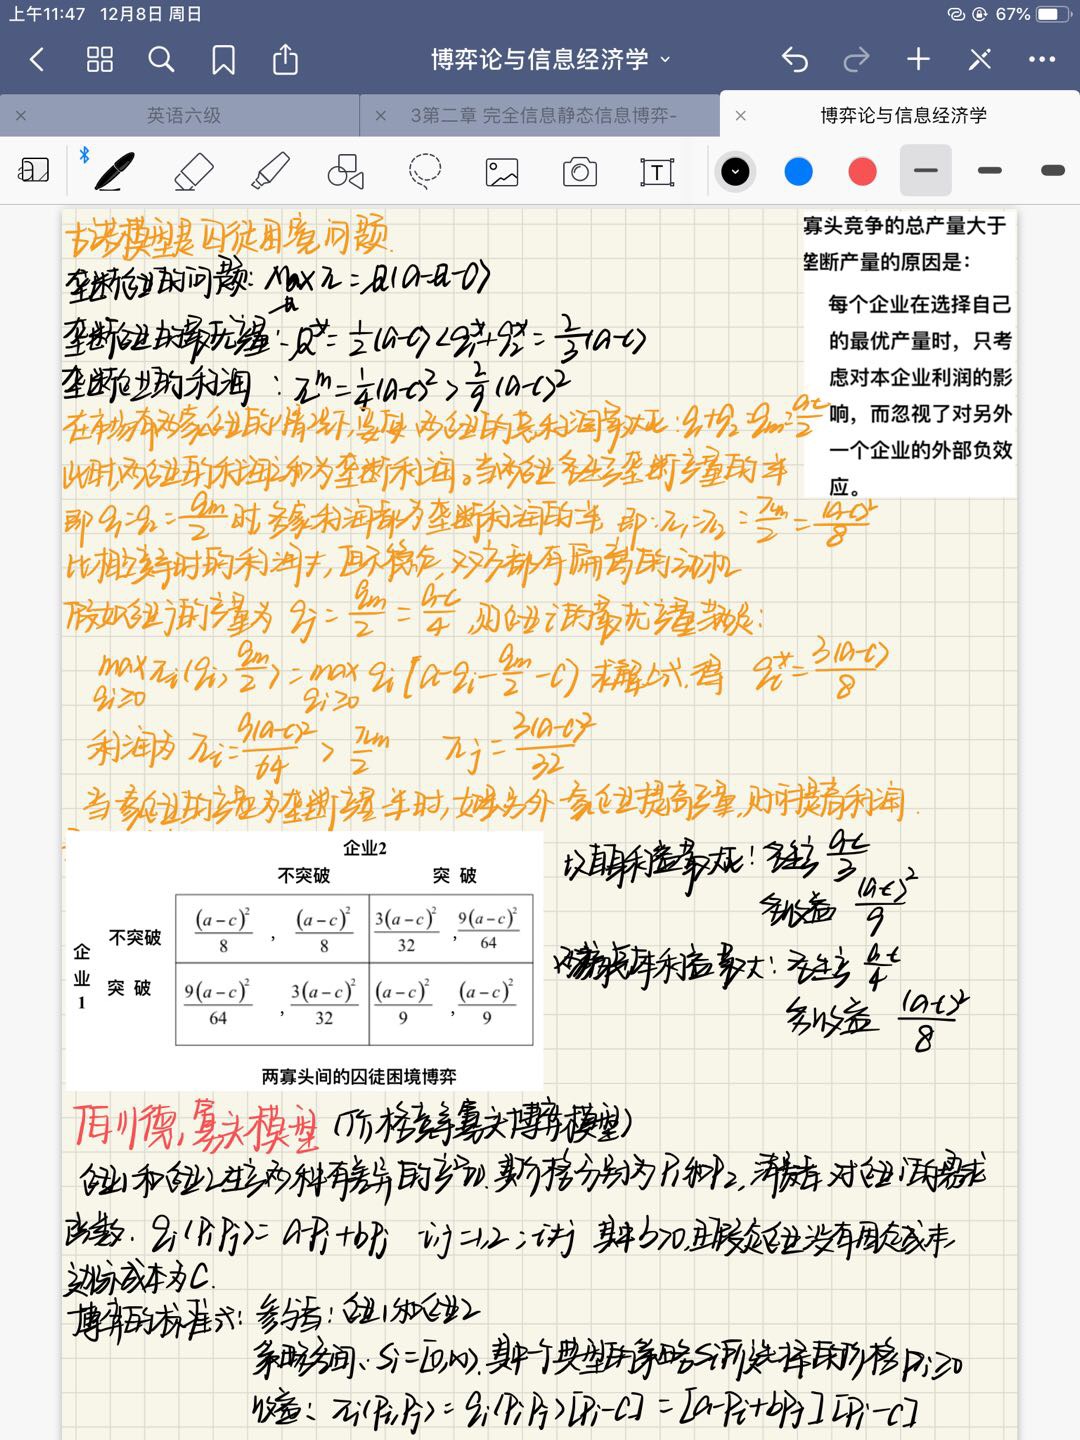 上午11:47 12月8日 周日
67%
博弈论与信息经济学
英语六级
3第二章 完全信息静态信息博弈-
博弈论与信息经济学
T
古诺模型是囚徒困境问题.
寡头竞争的总产量大于
垄断产量的原因是：
每个企业在选择自己
的最优产量时，只考
虑对本企业利润的影
响，而忽视了对另外
一个企业的外部负效
应。
垄断企业的问题: Max π = Q(a-Q-c)
Q
垄断企业的最优产量: Q* = 1/2(a-c) < q1*+q2* = 2/3(a-c)
垄断企业的利润: π^m = 1/4(a-c)² > 2/9(a-c)²
在市场有两家企业的情况下,要使两企业的总利润最大化: q1+q2=qm=(a-c)/2
此时,两企业的利润之和为垄断利润。当两企业各生产垄断产量的一半
即 q1=q2=qm/2 时,各家利润都为垄断利润的一半,即:π1=π2=πm/2=(a-c)²/8
比相互竞争时的利润大,但不稳定,双方都有偏离的动机
假如企业j的产量为 qj=qm/2=(a-c)/4,则企业i的最优产量满足:
max πi(qi, qm/2) = max qi[a-qi-qm/2-c) 求解上式,得 qi*=3(a-c)/8
qi≥0 qi≥0
利润为 πi=9(a-c)²/64 > πm/2 πj=3(a-c)²/32
当一家企业的产量为垄断产量一半时,如果另外一家企业提高产量,则可提高利润.
企业2
不突破 突 破
企业1
不突破 (a-c)²/8 , (a-c)²/8 3(a-c)²/32 , 9(a-c)²/64
突 破 9(a-c)²/64 , 3(a-c)²/32 (a-c)²/9 , (a-c)²/9
两寡头间的囚徒困境博弈
以自身利益最大化: 各生产 (a-c)/3
各收益 (a-c)²/9
以整体利益最大: 各生产 (a-c)/4
各收益 (a-c)²/8
伯川德寡头模型 (价格竞争寡头博弈模型)
企业1和企业2生产两种有差异的产品,其价格分别为P1和P2,消费者对企业i的需求
函数. qi(Pi,Pj)=a-Pi+bPj i,j=1,2;i≠j 其中b>0,且假定企业没有固定成本,
边际成本为C.
博弈的标准式: 参与者:企业1和企业2
策略空间: Si=[0,∞),其中一个典型的策略si是所选择的价格pi≥0
收益: πi(Pi,Pj)=qi(Pi,Pj)[Pi-C]=[a-Pi+bPj][Pi-C]